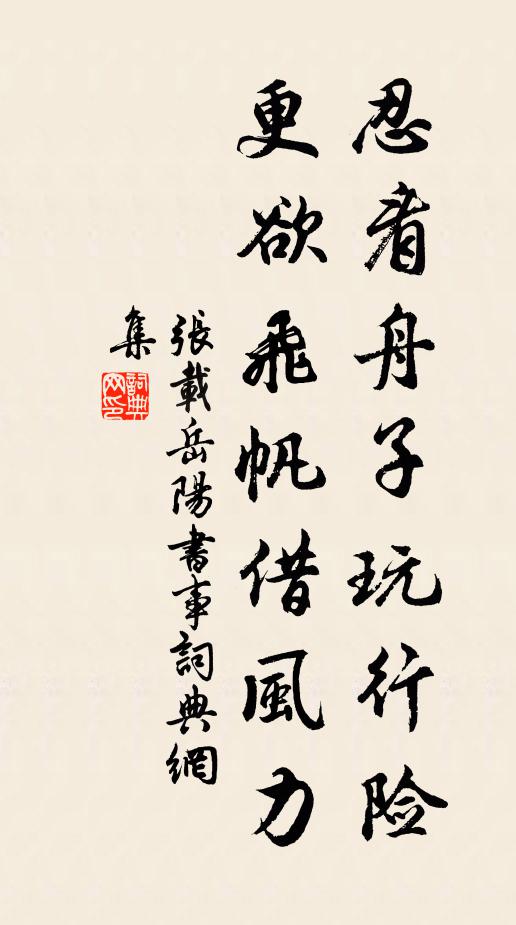 忍看舟子玩行险
更欲飛帆借風力
張載岳陽書事詞典網
集
詞典
网印